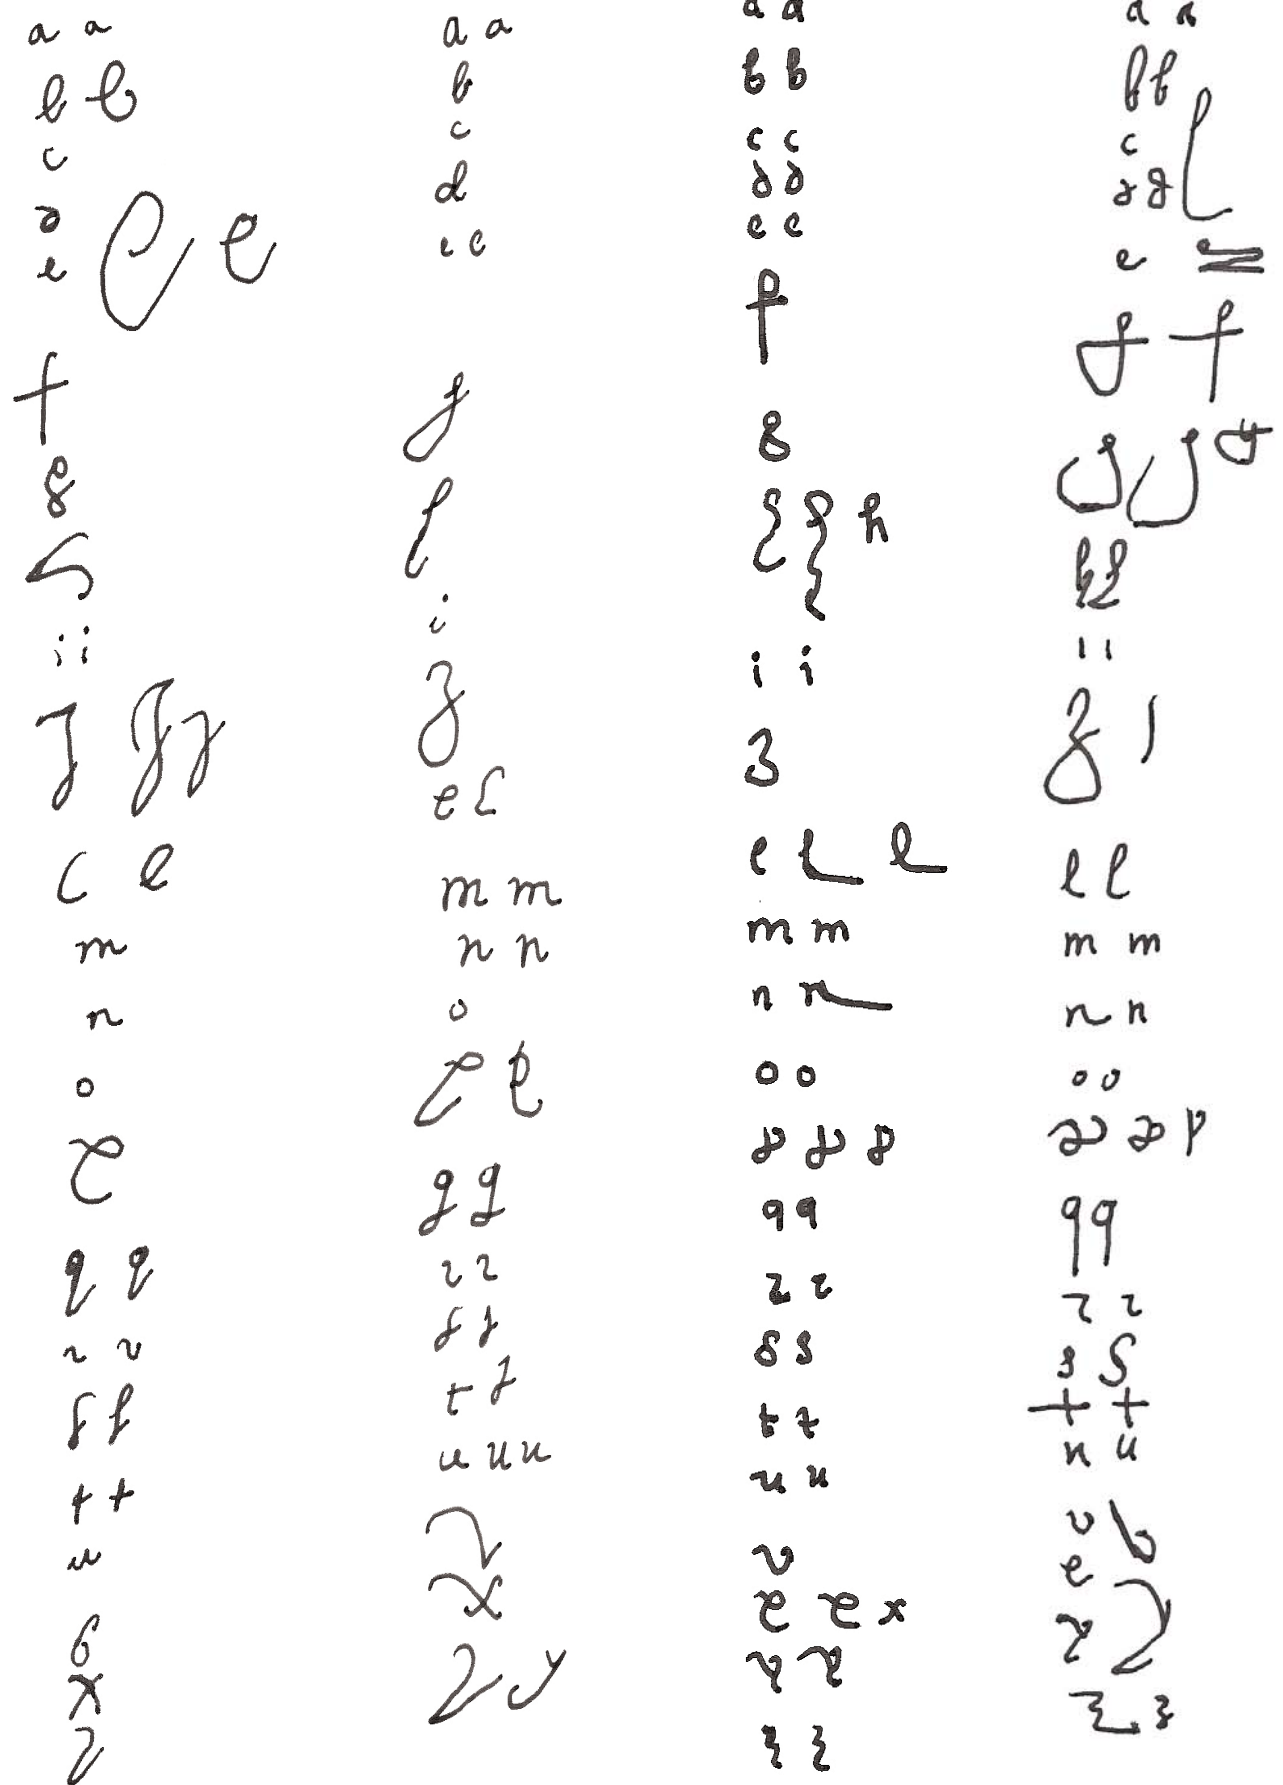 a a
b b
c
d
e e e
f
g
h
i i
j j j
l l
m
n
o
p
q q
r r
s s
t t
u
v
x
y
a a
b
c
d
e e
f
h
i
j
l l
m m
n n
o
p p
q q
r r
s s
t t
u u u
v
x
y y
a a
b b
c c
d d
e e
f
g
h h h
i i
j
l l l
m m
n n
o o
p p p
q q
r r
s s
t t
u u
v
x x x
y y
z z
a a
b b
c l
d d
e
f f
g g g
h h
i i
j j
l l
m m
n n
o o
p p p
q q
r r
s s
t t
u u
v v
x
y y
z z